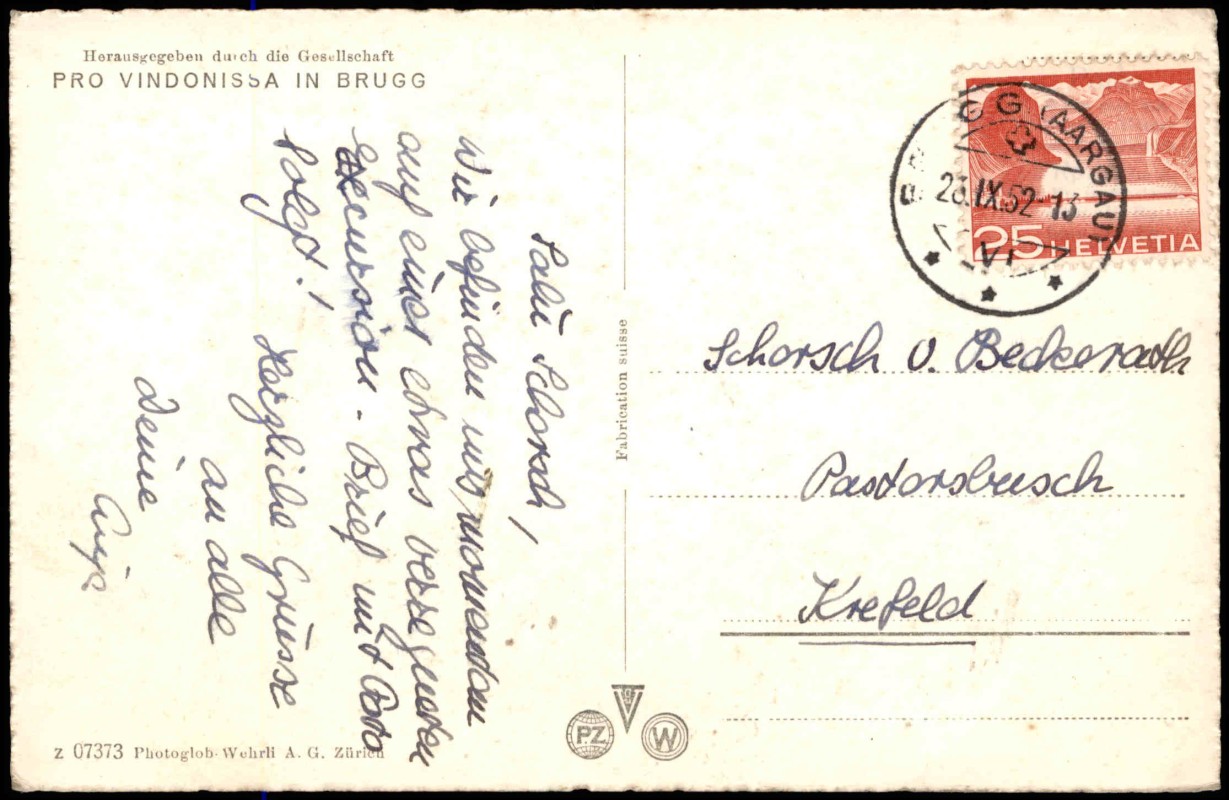 Herausgegeben durch die Gesellschaft
PRO VINDONISSA IN BRUGG
Salü Schorsch!
Wir befinden uns momentan
auf einer etwas verregneten
Excursion - Brief mit Foto
folgt!
Herzliche Grüsse
an alle
Deine
Fabrication suisse
BRUGG (AARGAU)
23.IX.52-13
VI
25 HELVETIA
Schorsch v. Beckerath
Pastorsbusch
Krefeld
PZ
W
Z 07373 Photoglob-Wehrli A. G. Zürich